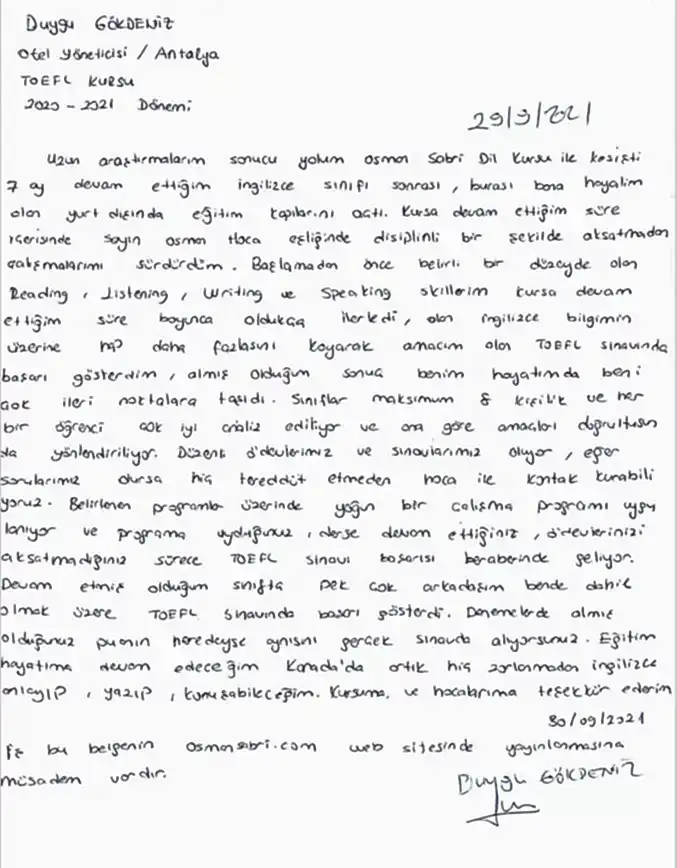 Duygu GÖKDENİZ
Otel Yöneticisi / Antalya
TOEFL KURSU
2020 - 2021 Dönemi
29/9/2021
Uzun araştırmalarım sonucu yolum osman Sabri Dil Kursu ile kesişti
7 ay devam ettiğim ingilizce sınıfı sonrası, burası bana hayalim
olan yurt dışında eğitim kapılarını açtı. Kursa devam ettiğim süre
içerisinde Sayın osman Hoca eşliğinde disiplinli bir şekilde aksatmadan
çalışmalarımı sürdürdüm. Başlamadan önce belirli bir düzeyde olan
Reading, Listening, Writing ve Speaking skillerim kursa devam
ettiğim süre boyunca oldukça ilerledi, olan ingilizce bilgimin
üzerine hep daha fazlasını koyarak amacım olan TOEFL sınavında
başarı gösterdim, almış olduğum sonuç benim hayatımda beni
çok ileri noktalara taşıdı. Sınıflar maksimum 8 kişilik ve her
bir öğrenci çok iyi analiz ediliyor ve ona göre amaçları doğrultusun
da yönlendiriliyor. Düzenli ödevlerimiz ve sınavlarımız oluyor, eğer
sorularımız olursa hiç tereddüt etmeden hoca ile kontak kurabili
yoruz. Belirlenen program üzerinde yoğun bir çalışma programı uygu
lanıyor ve programa uyduğunuz, derse devam ettiğiniz, ödevlerinizi
aksatmadığınız sürece TOEFL sınavı başarısı beraberinde geliyor.
Devam etmiş olduğum sınıfta pek çok arkadaşım bende dahil
olmak üzere TOEFL Sınavında başarı gösterdi. Denemelerde almış
olduğunuz puanın neredeyse aynısını gerçek sınavda alıyorsunuz. Eğitim
hayatıma devam edeceğim Kanada'da artık hiç zorlanmadan ingilizce
anlayıp, yazıp, konuşabileceğim. Kursuma, ve hocalarıma teşekkür ederim
30/09/2021
İş bu belgenin osmansabri.com web sitesinde yayınlanmasına
müsadem vardır.
Duygu GÖKDENİZ